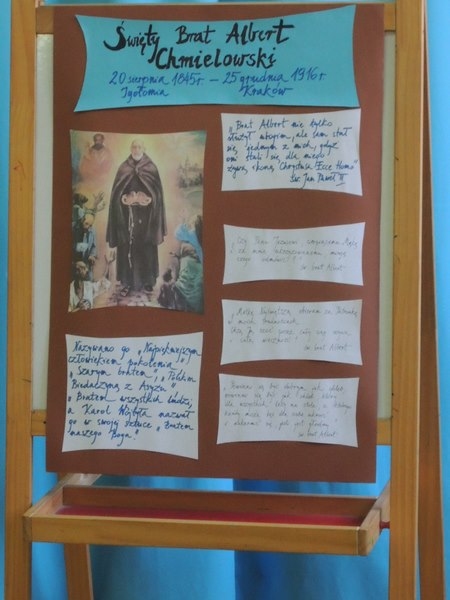 Święty Brat Albert
Chmielowski
20 sierpnia 1845r. – 25 grudnia 1916r.
Igołomia Kraków
"Brat Albert nie tylko
służył ubogim, ale sam stał
się jednym z nich, gdyż
oni stali się dla niego
żywą ikoną "Chrystusa Ecce Homo"
św. Jan Paweł II
"Czy Panu Jezusowi
czego odmówić?"
św. brat Albert
"Matkę Najświętszą obieram za
św. brat Albert
"Powinno się być dobrym jak chleb,
powinno się być jak chleb, który
dla wszystkich leży na stole, z którego
każdy może kęs dla siebie ukroić
i nakarmić się, jeśli jest głodny."
św. brat Albert
Nazywano go "Najpiękniejszym
człowiekiem pokolenia",
"Szarym bratem", "Polskim
Biedaczyną z Asyżu"
"Bratem wszystkich ludzi,
a Karol Wojtyła nazwał
go w swojej sztuce "Bratem
naszego Boga".